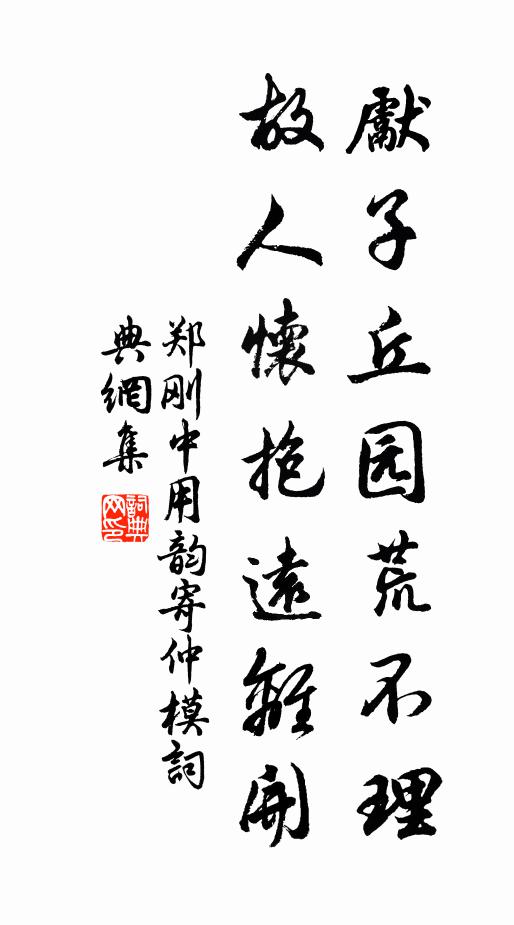 獻子丘园荒不理
故人懷抱遠難開
郑刚中用韵寄仲模詞
典網集
詞典
网印